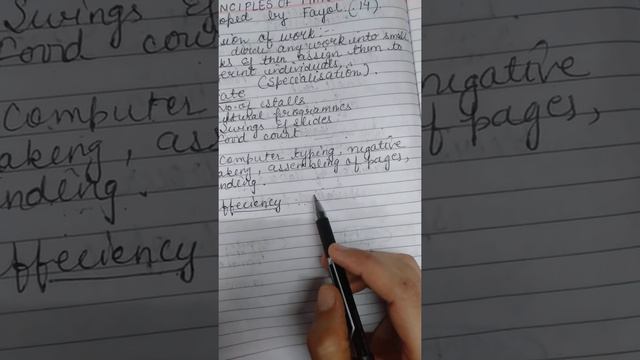 NCIPLES OF
oped by Fayol (14).
sion of work :-
divide any work into small
ks & then assign them to
erent individuals,
ate (Specialisation).
No. of stalls
ultural programmes
Swings & slides
Food court
Computer typing, negative
aking, assembling of pages,
nding.
ffeciency